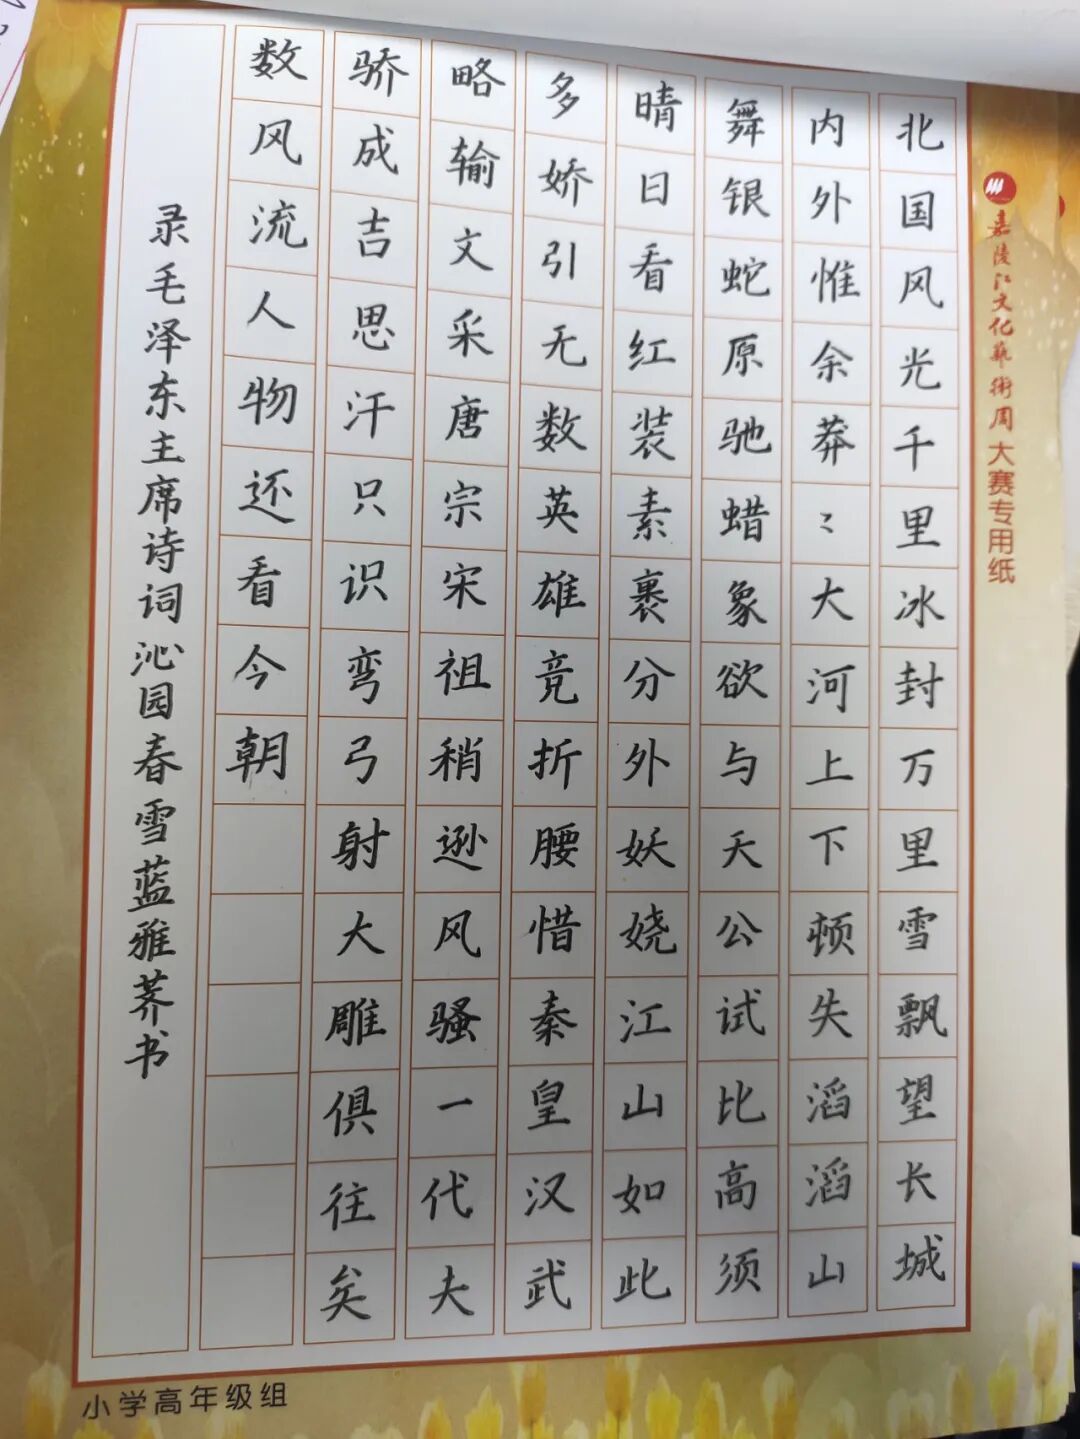 嘉陵江文化藝術周大赛专用纸
北国风光千里冰封万里雪飘望长城
内外惟余莽〻大河上下顿失滔滔山
舞银蛇原驰蜡象欲与天公试比高须
晴日看红装素裹分外妖娆江山如此
多娇引无数英雄竞折腰惜秦皇汉武
略输文采唐宗宋祖稍逊风骚一代夫
骄成吉思汗只识弯弓射大雕俱往矣
数风流人物还看今朝
录毛泽东主席诗词沁园春雪蓝雅荞书
小学高年级组